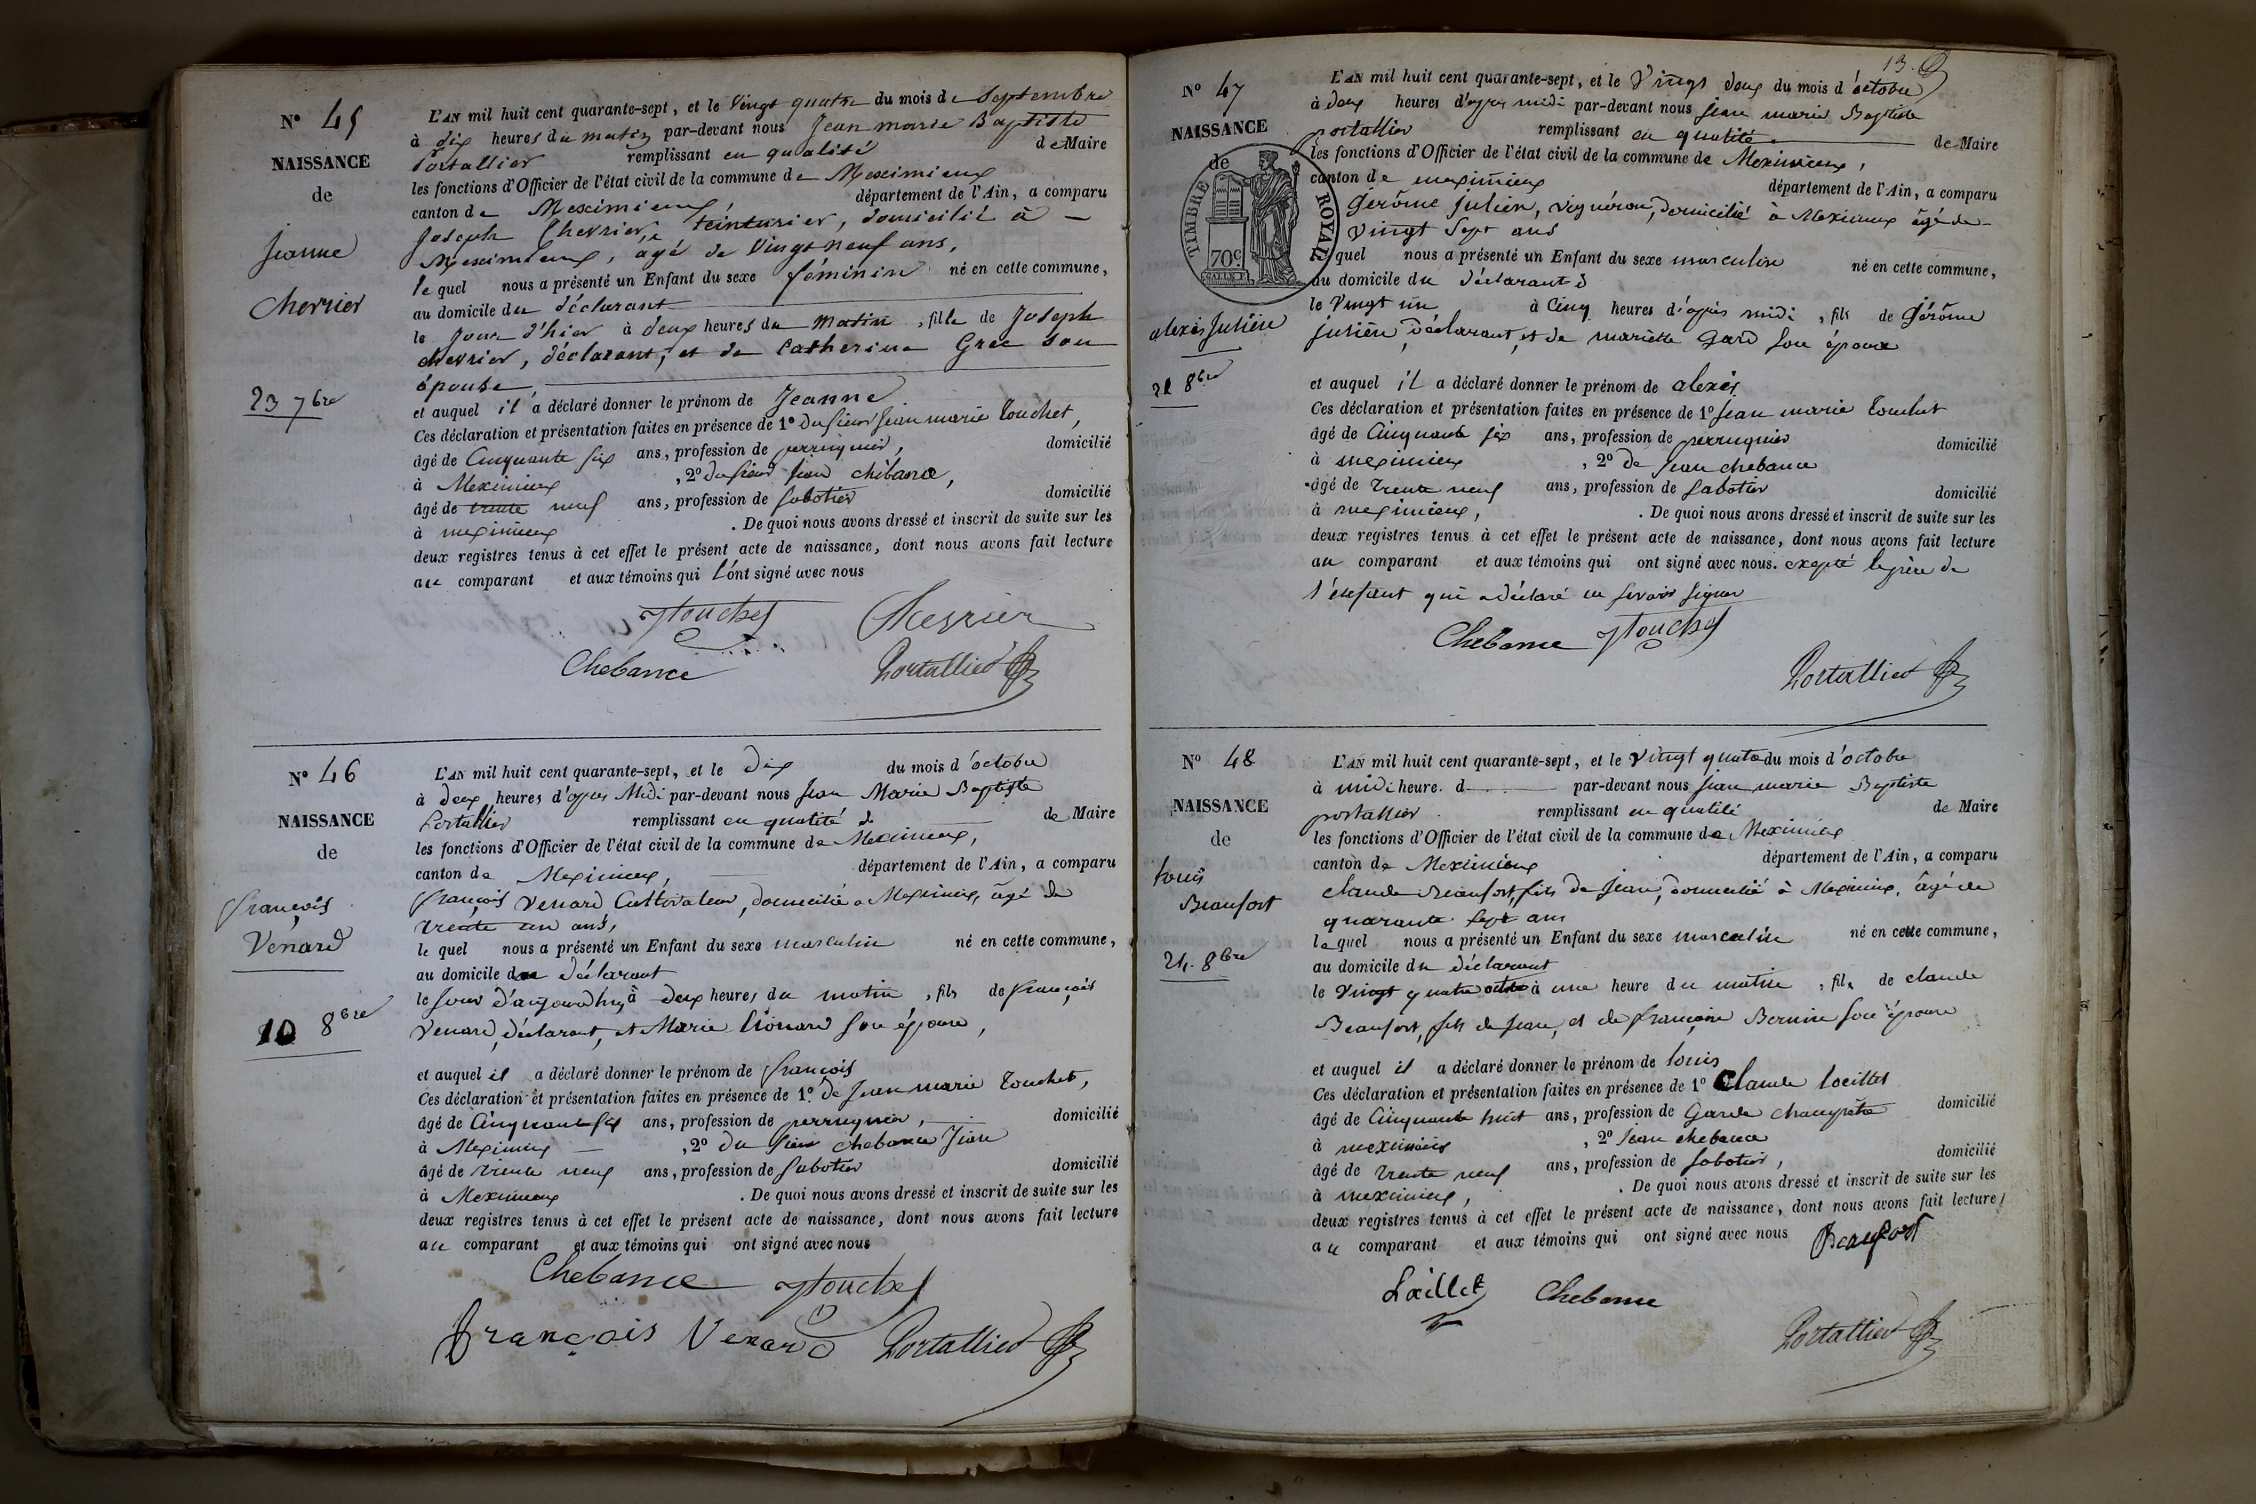 N° 45
NAISSANCE
de
Jeanne
Chevrier
23 7bre
L'AN mil huit cent quarante-sept, et le Vingt quatre du mois de Septembre
à dix heures du matin par-devant nous Jean marie Baptiste
Portallier remplissant en qualité de Maire
les fonctions d'Officier de l'état civil de la commune de Meximieux
canton de Meximieux, département de l'Ain, a comparu
Joseph Chevrier, teinturier, domicilié à
Meximieux, agé de Vingt neuf ans,
le quel nous a présenté un Enfant du sexe féminin né en cette commune,
au domicile du déclarant
le jour d'hier à deux heures du matin, fille de Joseph
chevrier, déclarant, et de Catherine Grec son
épouse
et auquel il a déclaré donner le prénom de Jeanne
Ces déclaration et présentation faites en présence de 1° du sieur Jean marie Touchet,
âgé de Cinquante six ans, profession de perruquier, domicilié
à Meximieux, 2° du sieur Jean chebance,
âgé de trente neuf ans, profession de Sabotier domicilié
à meximieux. De quoi nous avons dressé et inscrit de suite sur les
deux registres tenus à cet effet le présent acte de naissance, dont nous avons fait lecture
au comparant et aux témoins qui l'ont signé avec nous
Touchet Chevrier
Chebance Portallier
N° 46
NAISSANCE
de
françois
Venard
10 8bre
L'AN mil huit cent quarante-sept, et le dix du mois d'octobre
à deux heures d'après Midi par-devant nous Jean Marie Baptiste
Portallier remplissant en qualité de Maire
les fonctions d'Officier de l'état civil de la commune de Meximieux,
canton de Meximieux, département de l'Ain, a comparu
françois Venard Cultivateur, domicilié a Meximieux, âgé de
trente un ans,
le quel nous a présenté un Enfant du sexe masculin né en cette commune,
au domicile du déclarant
le jour d'aujourdhuy à deux heures du matin, fils de françois
Venard, déclarant, et Marie Liônard son épouse,
et auquel il a déclaré donner le prénom de françois
Ces déclaration et présentation faites en présence de 1° de Jean marie Touchet,
âgé de Cinquante six ans, profession de perruquier, domicilié
à Meximieux, 2° du sieur chebance Jean
âgé de trente neuf ans, profession de Sabotier domicilié
à Meximieux. De quoi nous avons dressé et inscrit de suite sur les
deux registres tenus à cet effet le présent acte de naissance, dont nous avons fait lecture
au comparant et aux témoins qui ont signé avec nous
Chebance Touchet
François Venard Portallier
13.
N° 47
NAISSANCE
de
TIMBRE ROYAL
70 c.
alexis Julien
21 8bre
L'AN mil huit cent quarante-sept, et le Vingt deux du mois d'octobre
à deux heures d'après midi par-devant nous jean marie Baptiste
portallier remplissant en qualité de Maire
les fonctions d'Officier de l'état civil de la commune de Meximieux,
canton de meximieux département de l'Ain, a comparu
Gérôme Julien, vigneron, domicilié à Meximieux âgé de
vingt Sept ans
le quel nous a présenté un Enfant du sexe masculin né en cette commune,
au domicile du déclarant
le Vingt un à Cinq heures d'après midi, fils de Gérôme
julien, déclarant, et de mariette Gard son épouse
et auquel il a déclaré donner le prénom de alexis
Ces déclaration et présentation faites en présence de 1° Jean marie Touchet
âgé de Cinquante six ans, profession de perruquier domicilié
à meximieux, 2° de Jean chebance
âgé de trente neuf ans, profession de Sabotier domicilié
à meximieux,. De quoi nous avons dressé et inscrit de suite sur les
deux registres tenus à cet effet le présent acte de naissance, dont nous avons fait lecture
au comparant et aux témoins qui ont signé avec nous. excepté le père de
l'enfant qui a déclaré ne savoir signer
Chebance Touchet
Portallier
N° 48
NAISSANCE
de
Louis
Beaufort
24. 8bre
L'AN mil huit cent quarante-sept, et le vingt quatre du mois d'octobre
à midi heure. d par-devant nous jean marie Baptiste
portallier remplissant en qualité de Maire
les fonctions d'Officier de l'état civil de la commune de Meximieux
canton de Meximieux département de l'Ain, a comparu
claude Beaufort, fils de Jean, domicilié à Meximieux, âgé de
quarante sept ans
le quel nous a présenté un Enfant du sexe masculin né en cette commune,
au domicile du déclarant
le vingt quatre octobre à une heure du matin, fils de claude
Beaufort, fils de Jean, et de françoise Bernin son épouse
et auquel il a déclaré donner le prénom de louis
Ces déclaration et présentation faites en présence de 1° Claude loeillet
âgé de Cinquante huit ans, profession de Garde champêtre domicilié
à meximieux, 2° Jean chebance
âgé de trente neuf ans, profession de Sabotier, domicilié
à meximieux,. De quoi nous avons dressé et inscrit de suite sur les
deux registres tenus à cet effet le présent acte de naissance, dont nous avons fait lecture
au comparant et aux témoins qui ont signé avec nous Beaufort
Lœillet Chebance
Portallier